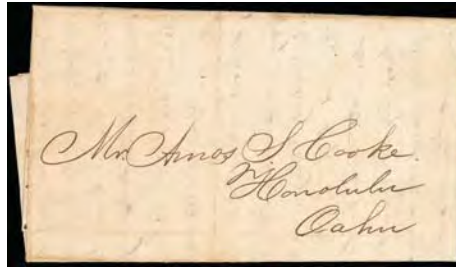 Mr. Amos S. Cooke.
Honolulu
Oahu